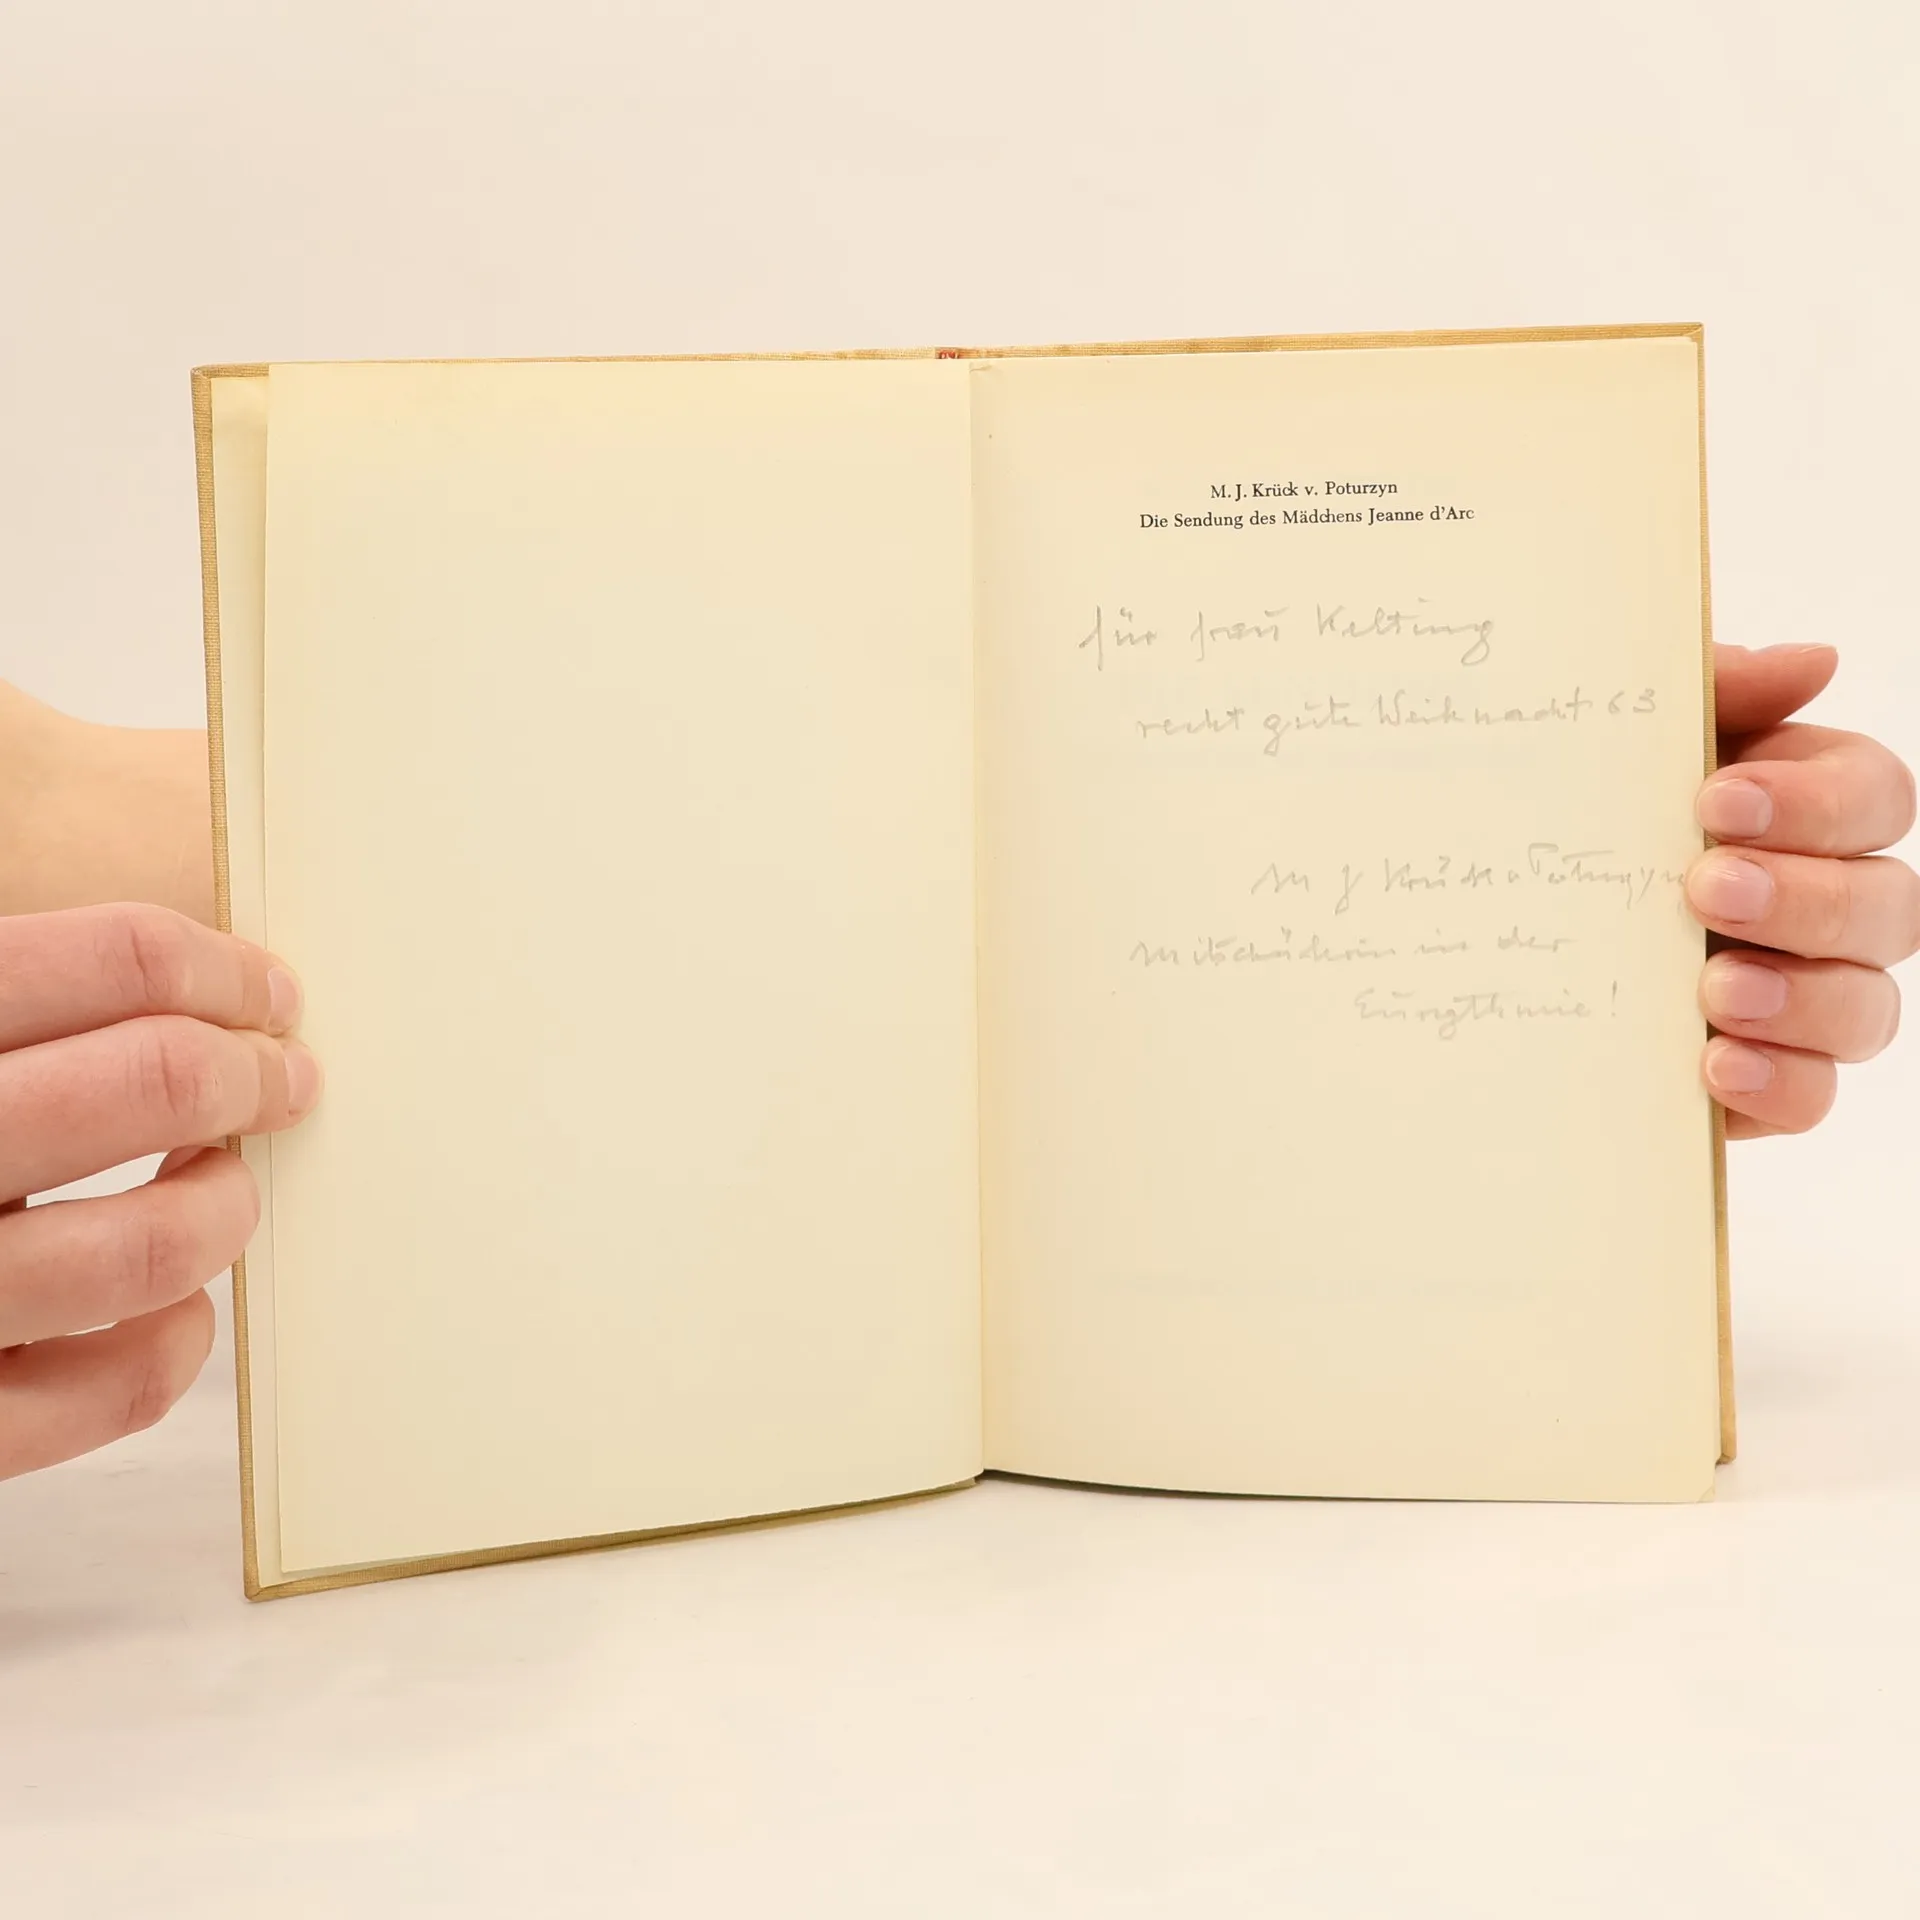 M. J. Krück v. Poturzyn
Die Sendung des Mädchens Jeanne d'Arc
für Frau Kelting
recht gute Weihnacht 63
M J Krück v Poturzyn
Mitschülerin in der
Eurythmie!